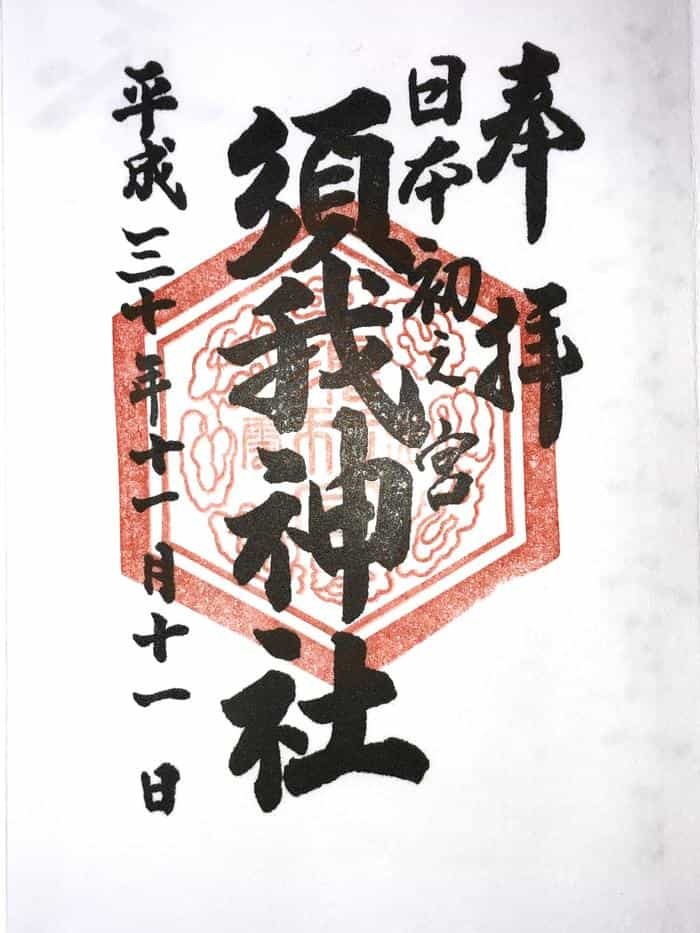 奉拝
日本初之宮
須我神社
平成三十年十一月十一日